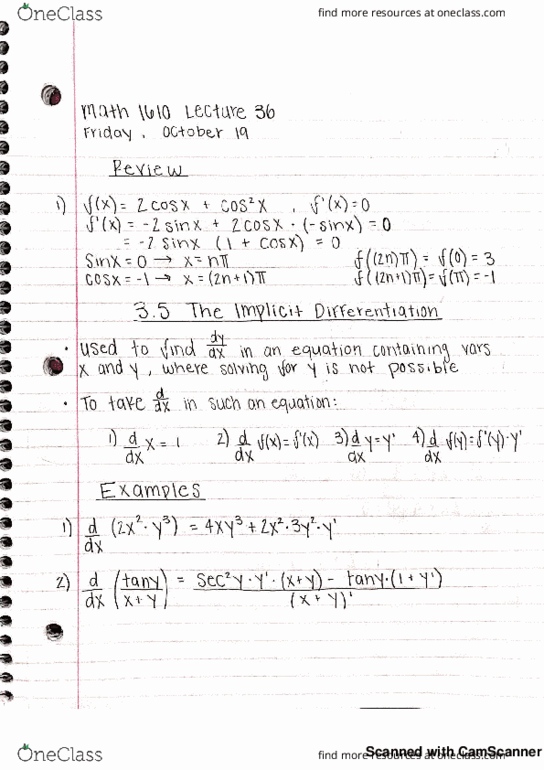 OneClass
find more resources at oneclass.com
Math 1610 Lecture 36
Friday, October 19
Review
1) f(x) = 2cosx + cos²x , f'(x)=0
f'(x) = -2sinx + 2cosx · (-sinx) = 0
= -2sinx (1 + cosx) = 0
sinx = 0 → x = nπ f((2n)π) = f(0) = 3
cosx = -1 → x = (2n+1)π f((2n+1)π) = f(π) = -1
3.5 The Implicit Differentiation
• used to find dy/dx in an equation containing vars
x and y, where solving for y is not possible
• To take d/dx in such an equation:
1) d/dx x = 1 2) d/dx f(x) = f'(x) 3) d/dx y = y' 4) d/dx f(y) = f'(y) · y'
Examples
1) d/dx (2x² · y³) = 4xy³ + 2x² · 3y² · y'
2) d/dx (tany / x+y) = sec²y · y' · (x+y) - tany · (1 + y') / (x + y)'
OneClass
find more resources at oneclass.com
Scanned with CamScanner